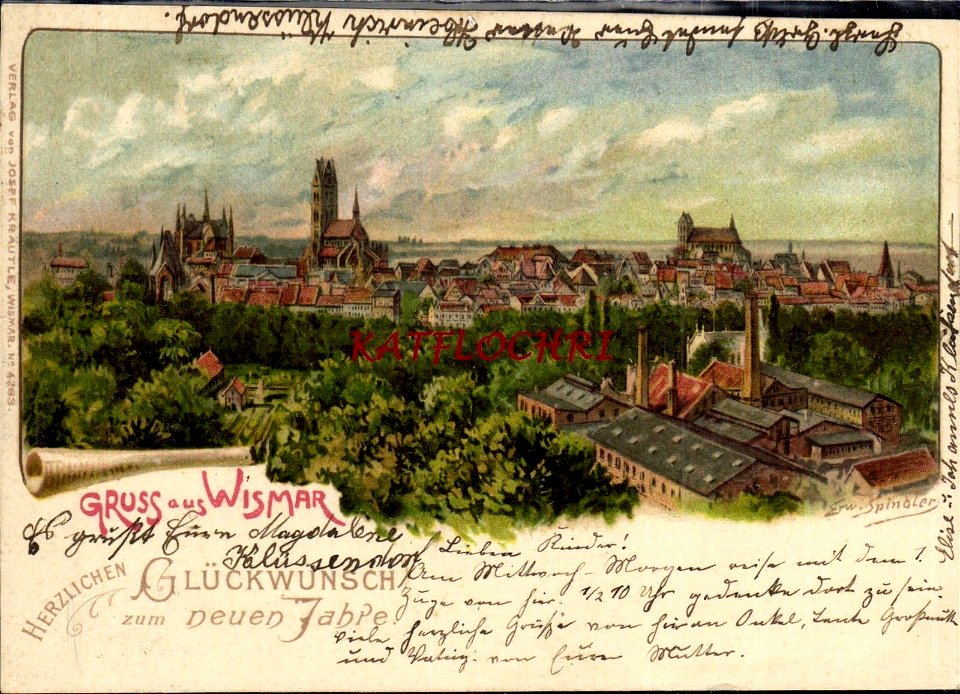 Herzl. Grüße sendet Euer Vetter Heinrich Klüssendorf.
VERLAG von JOSEF KRÄUTLE, WISMAR. No 4263.
KATFLOCHRI
Erw. Spindler
GRUSS aus WISMAR
Es grüßt Euern Magdalene
Klüssendorf
HERZLICHEN
GLÜCKWUNSCH
zum neuen Jahre
Lieben Kinder!
Am Mittwoch-Morgen reise mit dem 1.
Zuge von hier. 1/2 10 Uhr gedenke dort zu sein.
viele herzliche Grüße von hier an Onkel, Tante
und von Eurer Mutter.
Elise